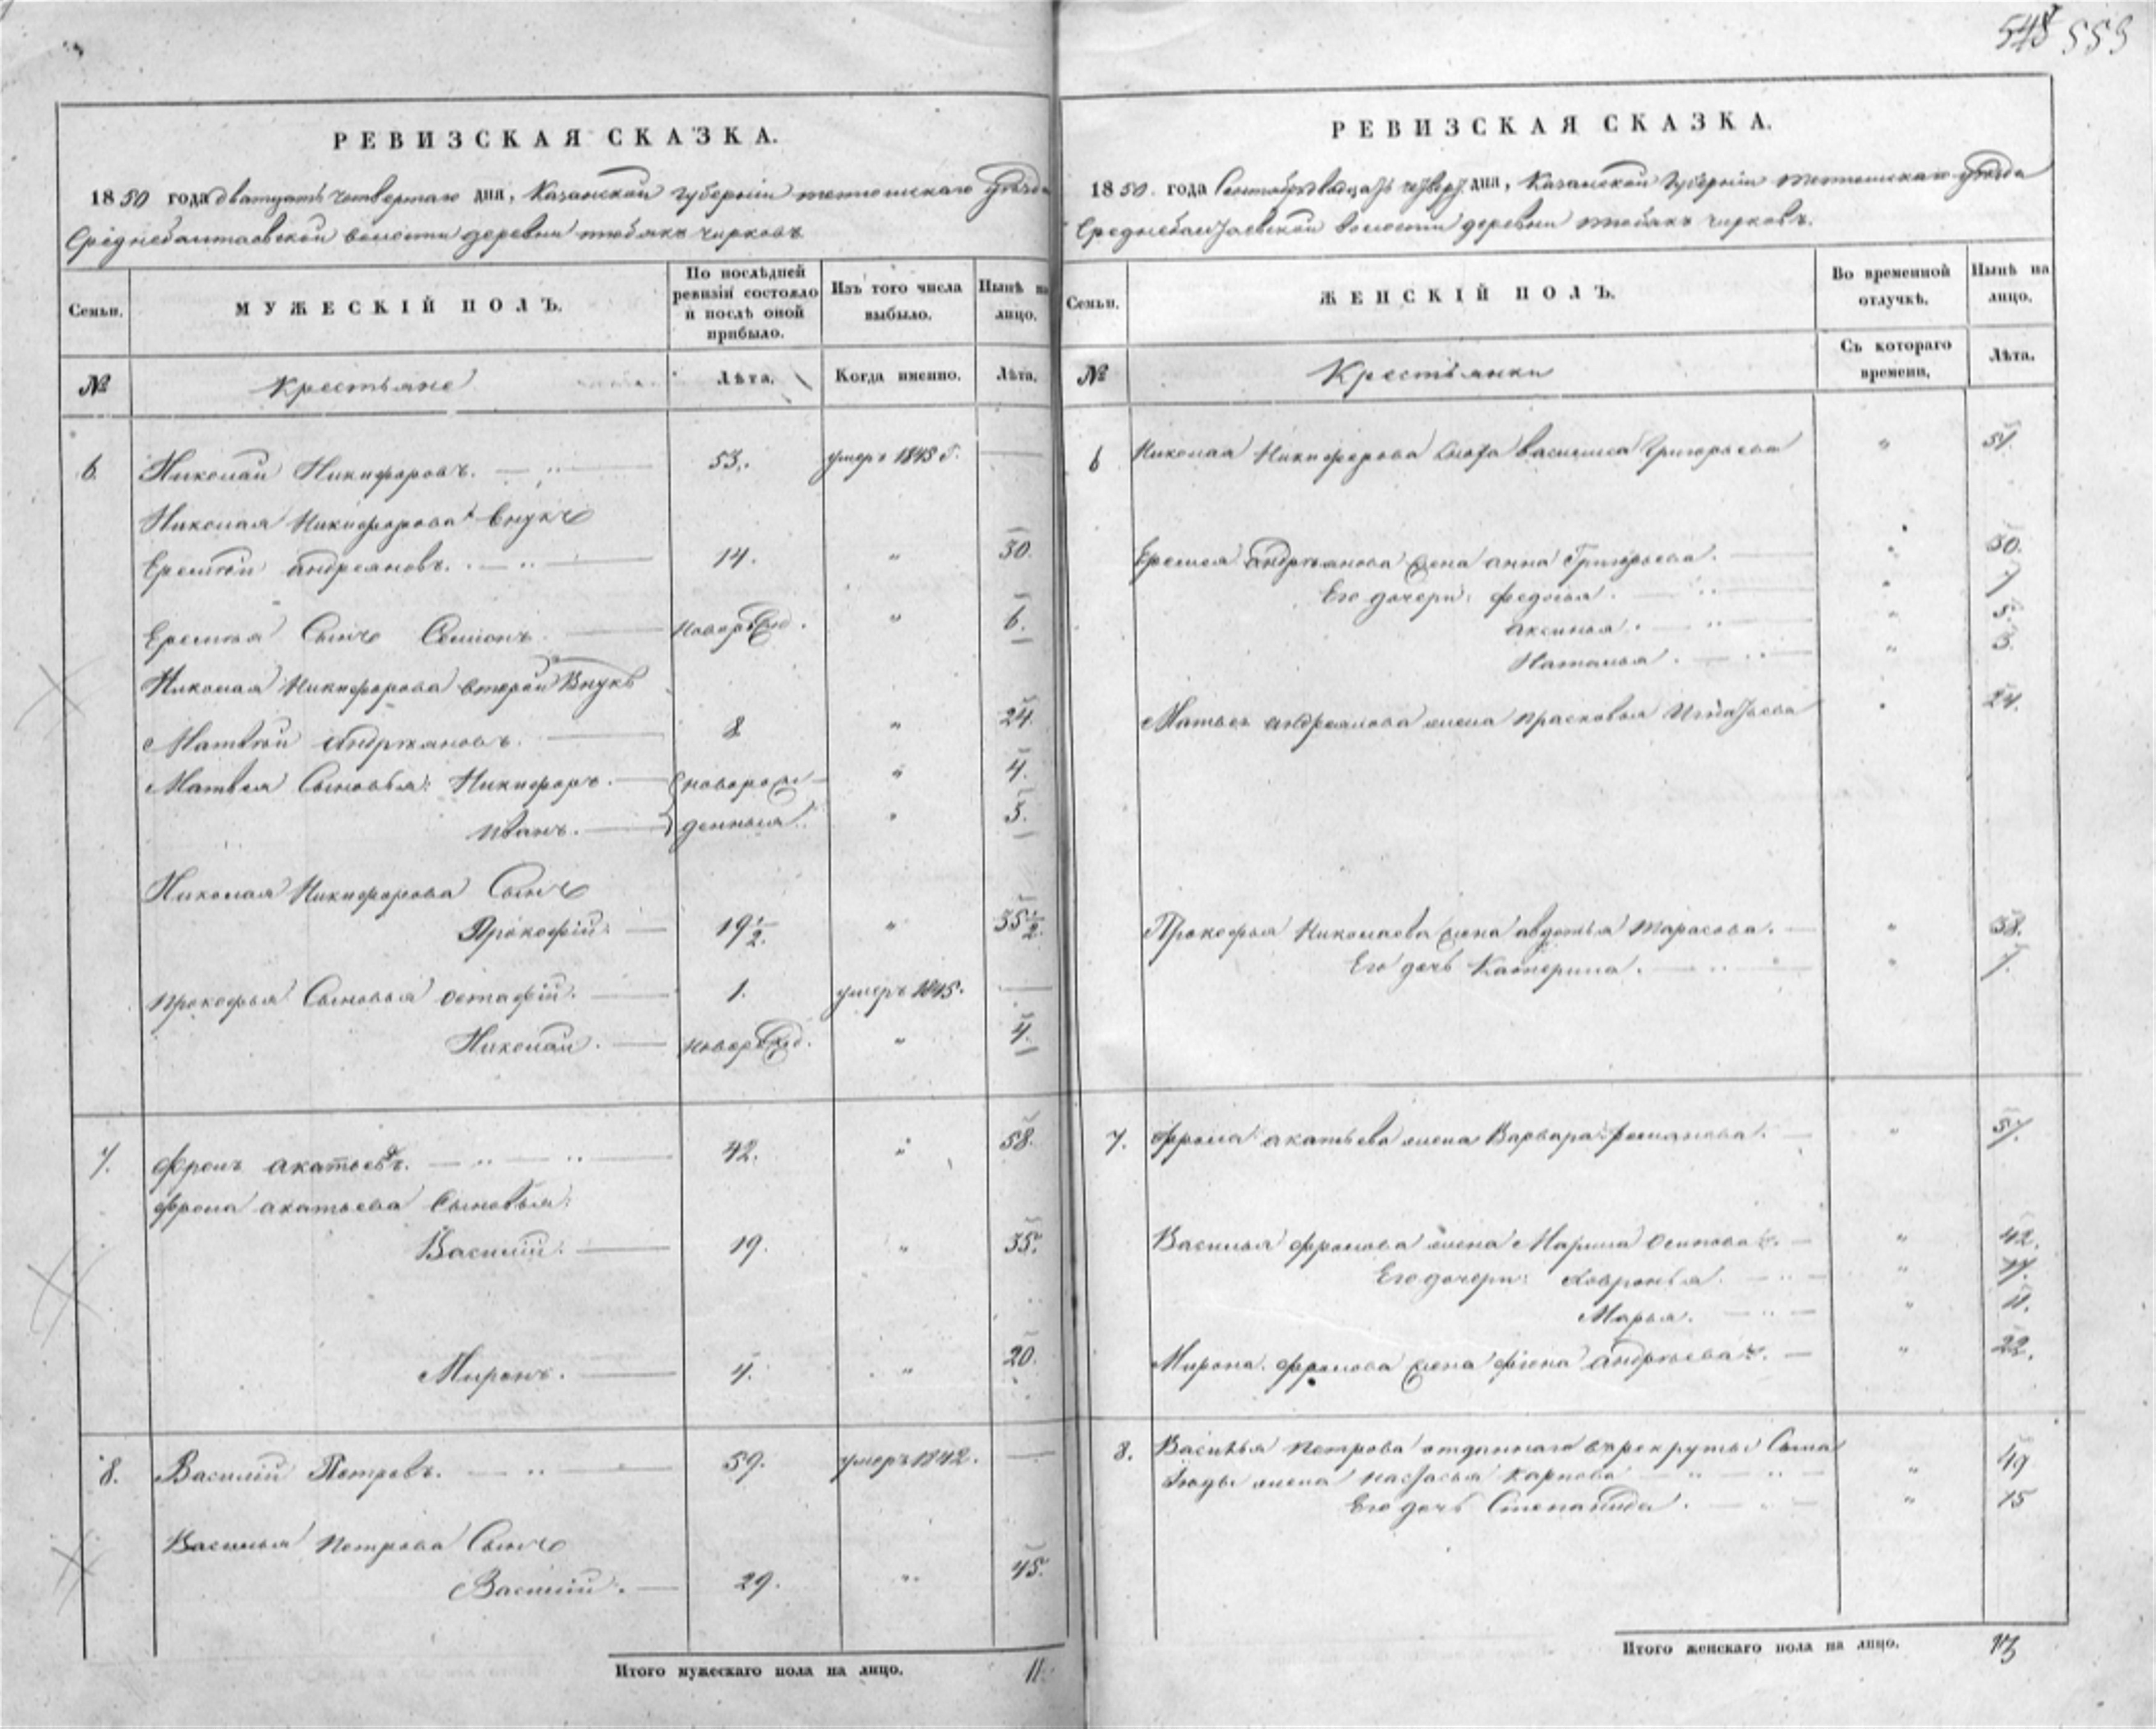 553
РЕВИЗСКАЯ СКАЗКА.
1850 года дватцать четвертаго дня, Казанской губернии тетюшскаго уѣзда
Среднебалтаевской волости деревни тюбякъ чирковъ
Семьи.
МУЖЕСКІЙ ПОЛЪ.
По послѣдней ревизіи состояло и послѣ оной прибыло.
Изъ того числа выбыло.
Нынѣ на лицо.
№
Крестьяне
Лѣта.
Когда именно.
Лѣта.
6. Николай Никифоровъ. 53. умеръ 1843 г.
Николая Никифорова внукъ
Еремѣй андреяновъ. 14. " 30.
Еремѣя Сынъ Семионъ. новорожд. " 6.
Николая Никифорова второй Внукъ
Матвѣй Андреяновъ. 8 " 24.
Матвея Сыновья: Никифоръ. новорож- " 4.
Иванъ. денныя. " 3.
Николая Никифорова Сынъ
Прокофій. 19 1/2. " 35 1/2.
Прокофья Сыновья остафій. 1. умеръ 1845.
Николай. новорожд. " 4.
7. Фролъ акатьевъ. 42. " 58.
Фрола акатьева Сыновья:
Василий. 19. " 35.
Миронъ. 4. " 20.
8. Василий Петровъ. 59. умеръ 1842.
Василья Петрова Сынъ
Василий. 29. " 45.
Итого мужескаго пола на лицо. 11.
РЕВИЗСКАЯ СКАЗКА.
1850 года Сентября дватцать четверт. дня, Казанской Губернии тетюшскаго уѣзда
Среднебалтаевской волости деревни тюбякъ чирковъ.
Семьи.
ЖЕНСКІЙ ПОЛЪ.
Во временной отлучкѣ.
Нынѣ на лицо.
№
Крестьянки
Съ котораго времени.
Лѣта.
6 Николая Никифорова василиса Григорьева "
Еремея андреянова жена анна Григорьева. " 30.
Его дочери: федосья. " 7
аксинья. " 5.
Наталья. " 3.
Матвея андреянова жена прасковья Игнатьева " 24.
Прокофья Николаева жена авдотья тарасова. " 38.
Его дочь Катерина. " 7.
7. Фрола акатьева жена Варвара романова. " 57.
Василья фролова жена Марина осипова. " 42.
Его дочери: Ховронья. "
Марья. " 11.
Мирона фролова жена фіона андреева. " 22.
8. Василья петрова отданнаго въ рекруты Сына
жена настасья карпова " 49
Его дочь Степанида. " 15
Итого женскаго пола на лицо. 13